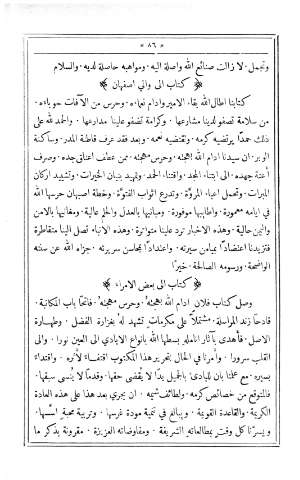 * ٨٦ *
وتجمل. لا زالت صنائع الله واصلة اليه. ومواهبه حاصلة لديه. والسلام
﴿ كتاب الى والي اصفهان ﴾
كتابنا اطال الله بقاء الامير وادام نعماءه. وحرس من الآفات حوباءه.
من سلامة تصفو لدينا مشارعها. وكرامة تضفو علينا مدارعها. والحمد لله على
ذلك حمدًا يرتضيه كرمه. وتقتضيه نعمه. وبعد فقد عرف قاطبة المدر. وساكنة
الوبر. ان سيدنا ادام الله بهجته. وحرس مهجته. ممن عطف اعناق جده. وصرف
أعنة جهده. الى ابتناء المجد. واقتناء الحمد. وتمهيد بنيان الخيرات. وتشييد اركان
المبرات. وتحمل اعباء المروّة. وتدرع اثواب الفتوّة. وخطة اصبهان حرسها الله
في ايامه معمورة. واطاييها موفورة. ومبانيها بالعدل والحلم عالية. ومغانيها بالامن
والعلم حالية. وهذه الاخبار ترد علينا متواترة. وهذه الانباء تصل الينا متقاطرة
فتزيدنا اعتضادًا بميامن سيرته. واعتدادًا بمحاسن سريرته. جزاه الله عن سننه
الواضحة. ورسومه الصالحة. خيرًا
﴿ كتاب الى بعض الامراء ﴾
وصل كتاب فلان. ادام الله بهجته. وحرس مهجته. فاتحًا باب المكاتبة.
قادحًا زند المراسلة. مشتملاً على مكرمات تشهد له بغزارة الفضل. وطهارة
الاصل. فأهدى بآثار انامله بسطها الله بأنواع الايادي الى العين نورا. والى
القلب سرورا. وأمرنا في الحال بتحرير هذا المكتوب اقتفاءً لأثره. واقتداءً
بسيره. مع علمنا بان للبادئ بالجميل يدًا لا يقضى حقها. وقدمًا لا ينسى سبقها.
فالمتوقع من خصائص كرمه. ولطائف شيمه. ان يجري بعد هذا على هذه العادة
الكريمة. والقاعدة القويمة. ويبالغ في تنمية مودة غرسها. وتربية محبة اسّسها.
ويسرّنا كل وقت بمطالعاته الشريفة. ومفاوضاته العزيزة. مقرونة بذكر ما